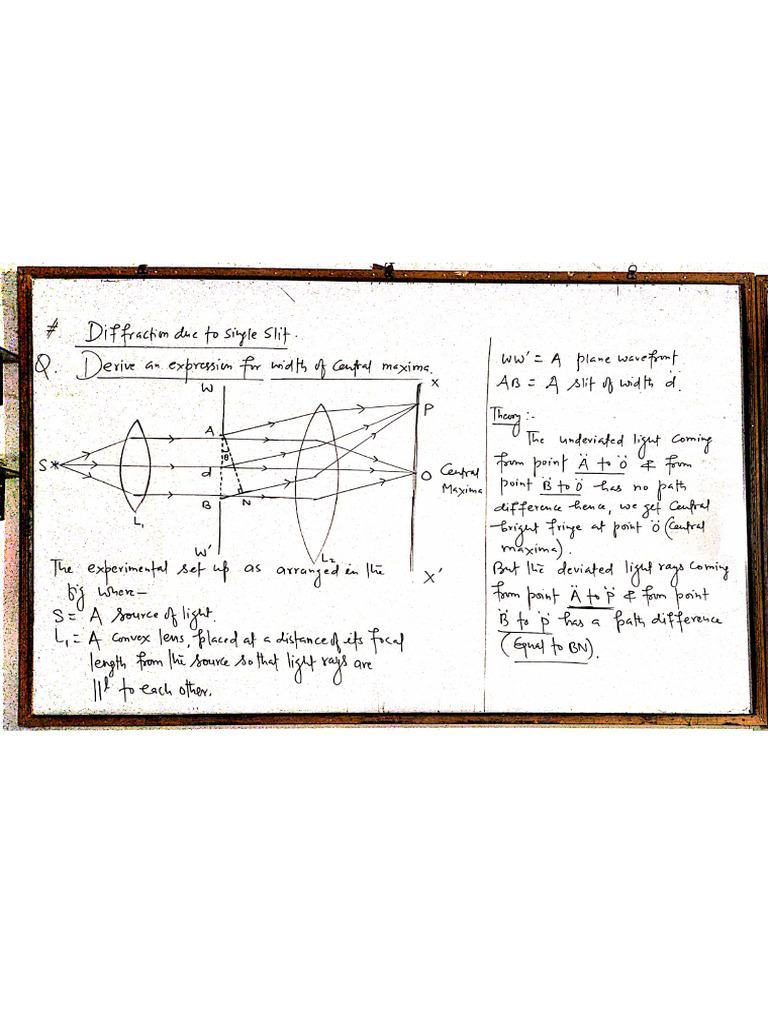 # Diffraction due to Single Slit.
Q. Derive an expression for width of Central maxima.
W
X
A
P
θ
S*
d
O Central
Maxima
B
N
L₁
W'
L₂
X'
The experimental set up as arranged in the
fig where—
S = A source of light.
L₁ = A convex lens, placed at a distance of its focal
length from the source so that light rays are
||l to each other.
WW' = A plane wavefront
AB = A slit of width d.
Theory :-
The undeviated light coming
from point Ä to Ö & from
point B̈ to Ö has no path
difference hence, we get Central
bright fringe at point Ö (Central
maxima).
But the deviated light rays coming
from point Ä to P̈ & from point
B̈ to P̈ has a path difference
(Equal to BN).